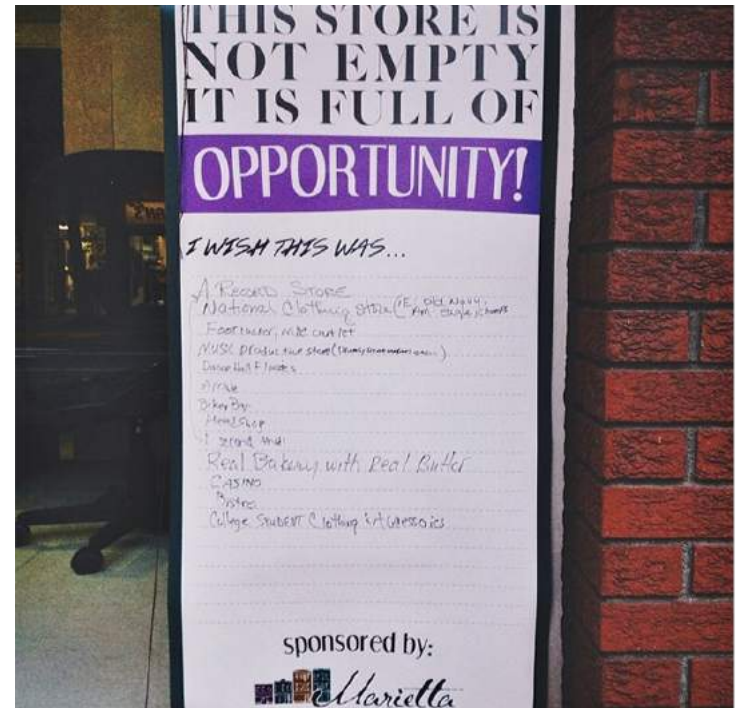 THIS STORE IS
NOT EMPTY
IT IS FULL OF
OPPORTUNITY!
I WISH THIS WAS...
A RECORD STORE
National Clothing store (IE: Old Navy,
Am. Eagle,
Footlocker, nike outlet
MUSIC production store
Dance Hall
Arcade
Biker Bar
Head Shop
I second that!
Real Bakery with Real Butter
CASINO
Bistro
College STUDENT Clothing
sponsored by:
Marietta